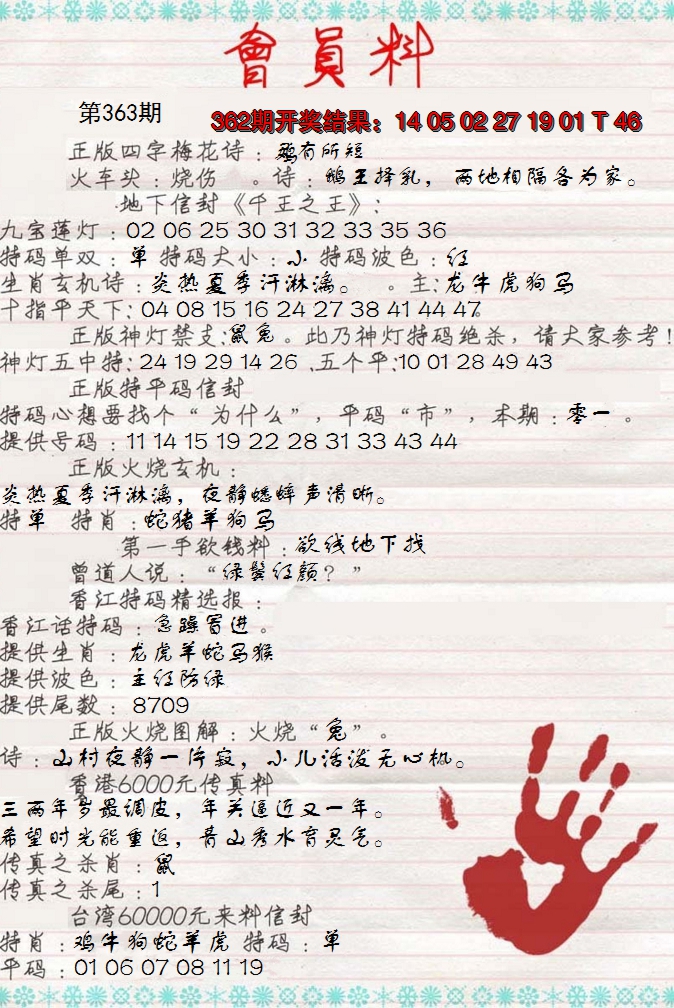 會員料
第363期
362期开奖结果：14 05 02 27 19 01 T 46
正版四字梅花诗：鹅有所短
火车头：烧伤 。诗：鹅王择乳，两地相隔各为家。
地下信封《千王之王》：
九宝莲灯：02 06 25 30 31 32 33 35 36
特码单双：单 特码大小：小 特码波色：红
生肖玄机诗：炎热夏季汗淋漓。 。主：龙牛虎狗马
十指平天下：04 08 15 16 24 27 38 41 44 47
正版神灯禁支：鼠兔。此乃神灯特码绝杀，请大家参考！
神灯五中特：24 19 29 14 26 、五个平：10 01 28 49 43
正版特平码信封
特码心想要找个“为什么”，平码“市”，本期：零一 。
提供号码：11 14 15 19 22 28 31 33 43 44
正版火烧玄机：
炎热夏季汗淋漓，夜静蟋蟀声清晰。
特单 特肖：蛇猪羊狗马
第一手欲钱料：欲钱地下找
曾道人说：“绿鬓红颜？”
香江特码精选报：
香江话特码：急躁冒进。
提供生肖：龙虎羊蛇马猴
提供波色：主红防绿
提供尾数：8709
正版火烧图解：火烧“兔”。
诗：山村夜静一片寂，小儿活泼无心机。
香港6000元传真料
三两年岁最调皮，年关逼近又一年。
希望时光能重返，青山秀水育灵气。
传真之杀肖：鼠
传真之杀尾：1
台湾60000元来料信封
特肖：鸡牛狗蛇羊虎 特码：单
平码：01 06 07 08 11 19